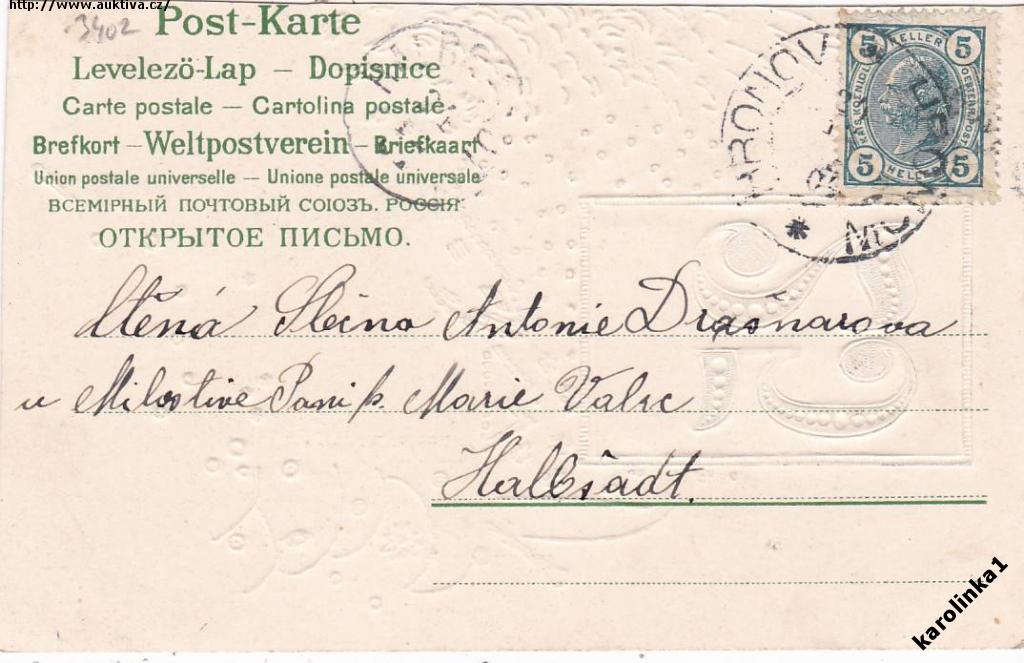 http://www.auktiva.cz/
3402
Post-Karte
Levelezö-Lap – Dopisnice
Carte postale – Cartolina postale
Brefkort – Weltpostverein – Briefkaart
Union postale universelle – Unione postale universale
ВСЕМІРНЫЙ ПОЧТОВЫЙ СОЮЗЪ. РОССІЯ
ОТКРЫТОЕ ПИСЬМО.
5 KELLER 5
5 HELLER 5
HRONOV
Ctěná Slečno Antonie Drasnarova
u Milostive Pani p. Marie Valic
Halbstadt.
karolinka1